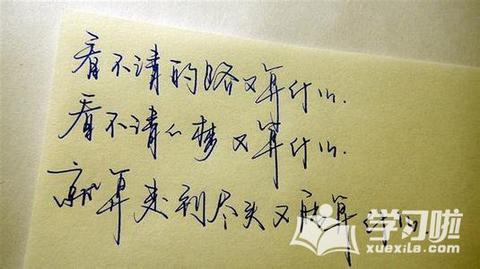 看不清的路又算什么.
看不清的梦又算什么.
就算来到尽头又能算什么.
学习啦
www.xuexila.com